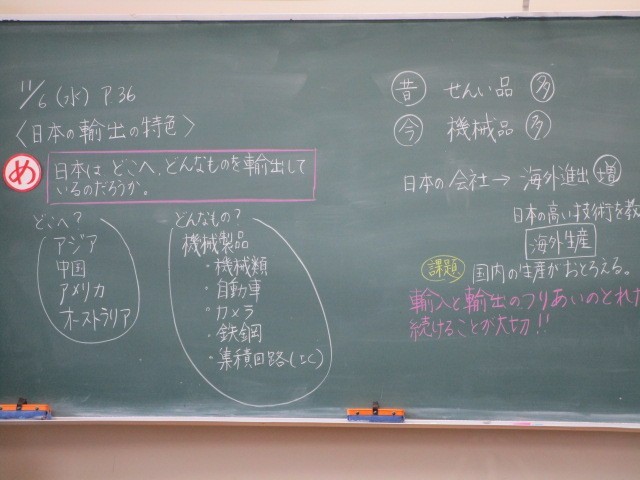 11/6(水) P.36
〈日本の輸出の特色〉
め
日本は どこへ、どんなものを輸出して
いるのだろうか。
どこへ?
アジア
中国
アメリカ
オーストラリア
どんなもの?
機械製品
・機械類
・自動車
・カメラ
・鉄鋼
・集積回路(IC)
昔 せんい品 多
今 機械品 多
日本の会社→ 海外進出 増
日本の高い技術を教
海外生産
課題 国内の生産がおとろえる。
輸入と輸出のつりあいのとれた
続けることが大切!!